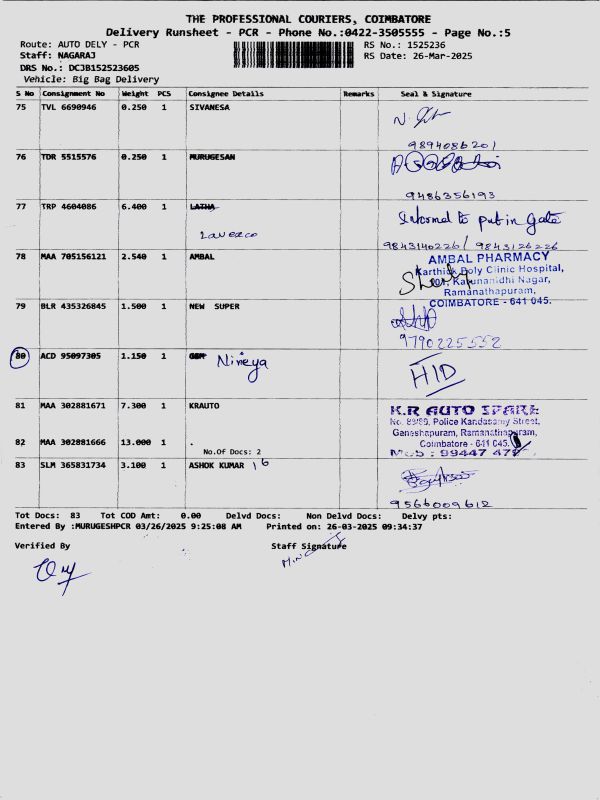 THE PROFESSIONAL COURIERS, COIMBATORE
Delivery Runsheet - PCR - Phone No.:0422-3505555 - Page No.:5
Route: AUTO DELY - PCR RS No.: 1525236
Staff: NAGARAJ RS Date: 26-Mar-2025
DRS No.: DCJB152523605
Vehicle: Big Bag Delivery
S No Consignment No Weight PCS Consignee Details Remarks Seal & Signature
75 TVL 6690946 0.250 1 SIVANESA
9894086201
76 TDR 5515576 0.250 1 MURUGESAN
9486356193
77 TRP 4604086 6.400 1 LATHA Informed to put in Gate
9843140226 / 9843126226
78 MAA 705156121 2.540 1 AMBAL AMBAL PHARMACY
Karthick Poly Clinic Hospital,
Karunanidhi Nagar,
Ramanathapuram,
COIMBATORE - 641 045.
79 BLR 435326845 1.500 1 NEW SUPER
9790225552
80 ACD 95097305 1.150 1 HID
81 MAA 302881671 7.300 1 KRAUTO K.R AUTO SPARE
No. 89/90, Police Kandasamy Street,
Ganeshapuram, Ramanathapuram,
82 MAA 302881666 13.000 1 . Coimbatore - 641 045.
No.Of Docs: 2 Mob : 99447
83 SLM 365831734 3.100 1 ASHOK KUMAR 16
9566009612
Tot Docs: 83 Tot COD Amt: 0.00 Delvd Docs: Non Delvd Docs: Delvy pts:
Entered By :MURUGESHPCR 03/26/2025 9:25:08 AM Printed on: 26-03-2025 09:34:37
Verified By Staff Signature